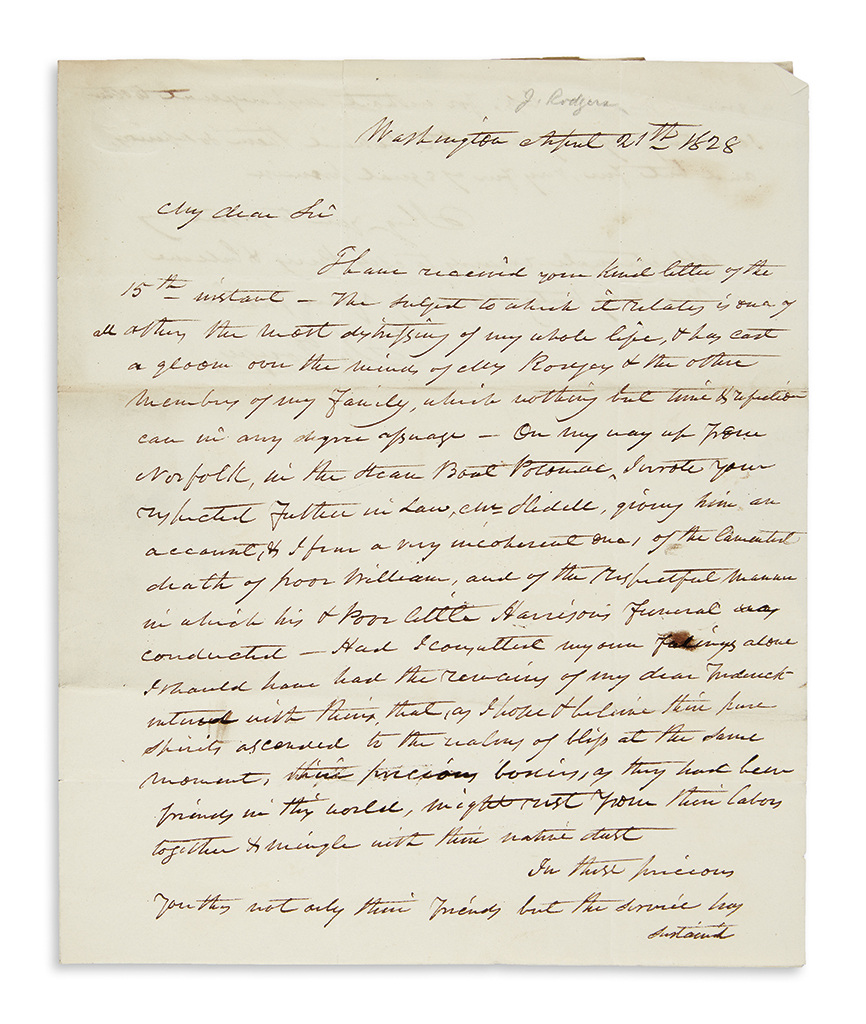 J. Rodgers
Washington April 21th 1828
My dear Sir
I have received your kind letter of the
15th instant – The subject to which it relates is one of
all others the most distressing of my whole life, & has cast
a gloom over the minds of Mrs Rodgers & the other
members of my Family, which nothing but time & reflection
can in any degree assuage – On my way up from
Norfolk, in the Steam Boat Potomac, I wrote your
respected Father in Law, Mr Slidell, giving him an
account, & I fear a very incoherent one, of the lamented
death of poor William, and of the respectful manner
in which his & Poor little Harrison's Funeral was
conducted – Had I consulted my own feelings alone
I should have had the remains of my dear Frederick
intered with theirs, that, as I hope & believe their pure
spirits ascended to the realms of bliss at the same
moment, their precious bodies, as they had been
friends in this world, might rest from their labors
together & mingle with their native dust
In these precious
Youths not only their Friends but the service has
sustained